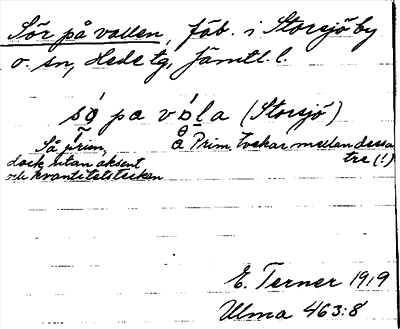 Sör på vallen, fäb. i Storsjö by
o. sn, Hede tg, Jämtl. l.
så pæ våla (Storsjö)
Så Prim, å Prim. tvekar mellan dessa
dock utan aksent tre (!)
och kvantitetstecken
E. Terner 1919
Ulma 463:8